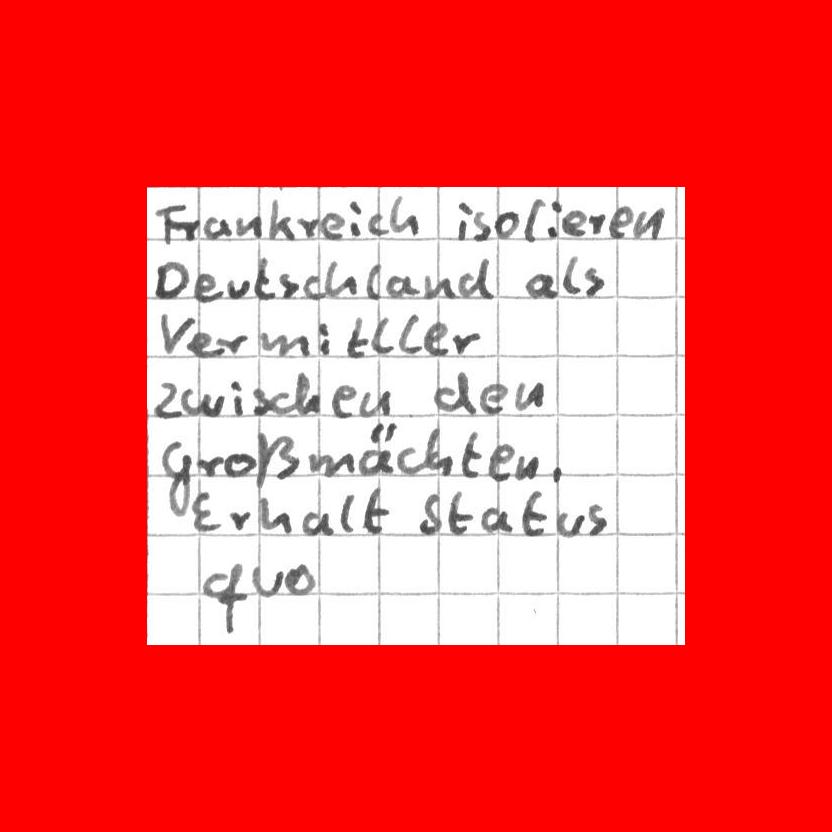 Frankreich isolieren
Deutschland als
Vermittller
zwischen den
Großmächten.
Erhalt Status
quo